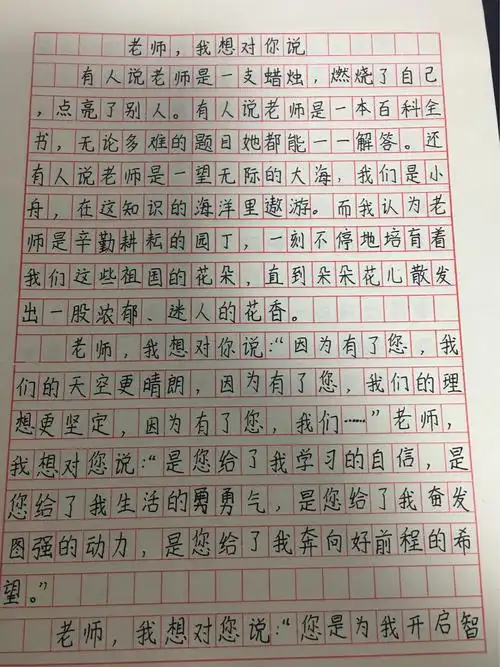 老师，我想对你说
有人说老师是一支蜡烛，燃烧了自己
，点亮了别人。有人说老师是一本百科全
书，无论多难的题目她都能一一解答。还
有人说老师是一望无际的大海，我们是小
舟，在这知识的海洋里遨游。而我认为老
师是辛勤耕耘的园丁，一刻不停地培育着
我们这些祖国的花朵，直到朵朵花儿散发
出一股浓郁、迷人的花香。
老师，我想对你说：“因为有了您，我
们的天空更晴朗，因为有了您，我们的理
想更坚定，因为有了您，我们……”老师，
我想对您说：“是您给了我学习的自信，是
您给了我生活的勇勇气，是您给了我奋发
图强的动力，是您给了我奔向好前程的希
望。”
老师，我想对您说：“您是为我开启智